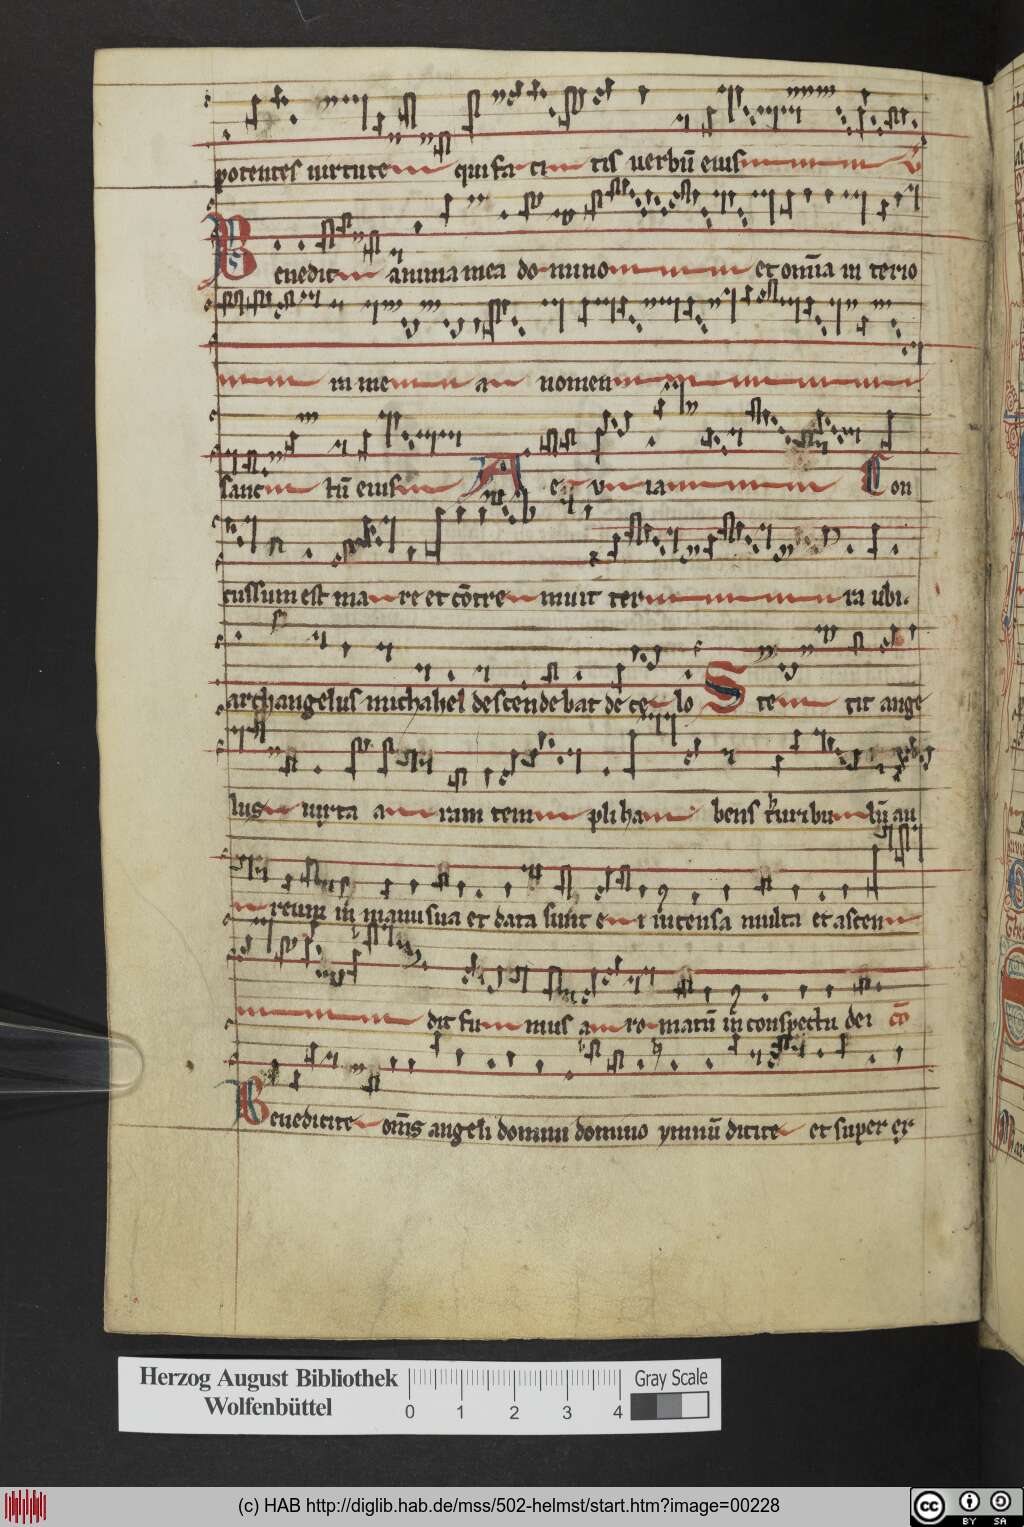 potentes uirtute qui fa ci tis uerbū eius V
Benedic anima mea do mino et om̄ia in terio
in me a nomen
sanc tū eius A e v ia Con
cussum est ma re et cōtre muit ter ra ubi
archangelus michahel descendebat de ce lo Ste tit ange
lus iuxta a ram tem pli ha bens turibu lū au
reum in manu sua et data sunt e i incensa multa et ascen
dit fu mus a ro matū in conspectu dei cō
Benedicite om̄s angeli domini domino ymnū dicite et super ex
Herzog August Bibliothek
Wolfenbüttel
0 1 2 3 4
Gray Scale
(c) HAB http://diglib.hab.de/mss/502-helmst/start.htm?image=00228
cc BY SA